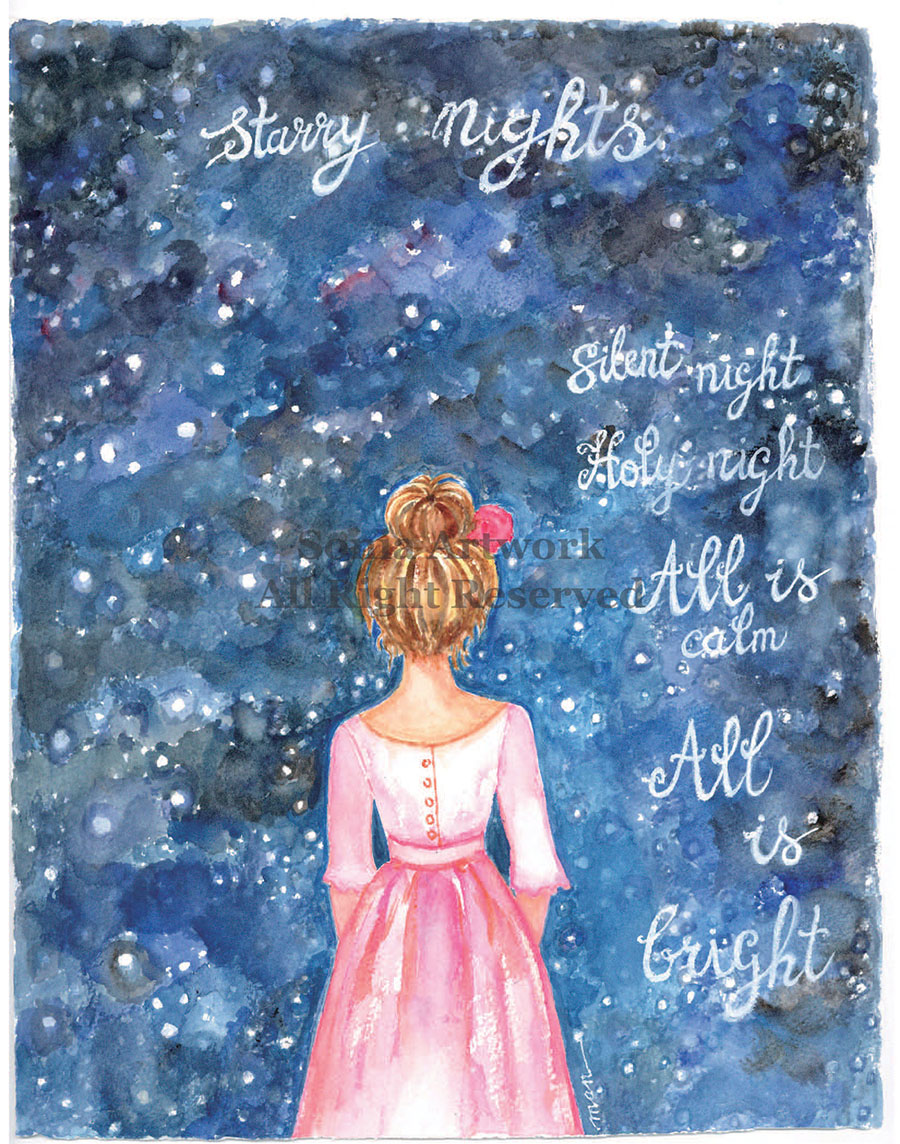 starry nights
Silent night
Holy night
Soma Artwork
All Right Reserved
All is
calm
All
is
bright